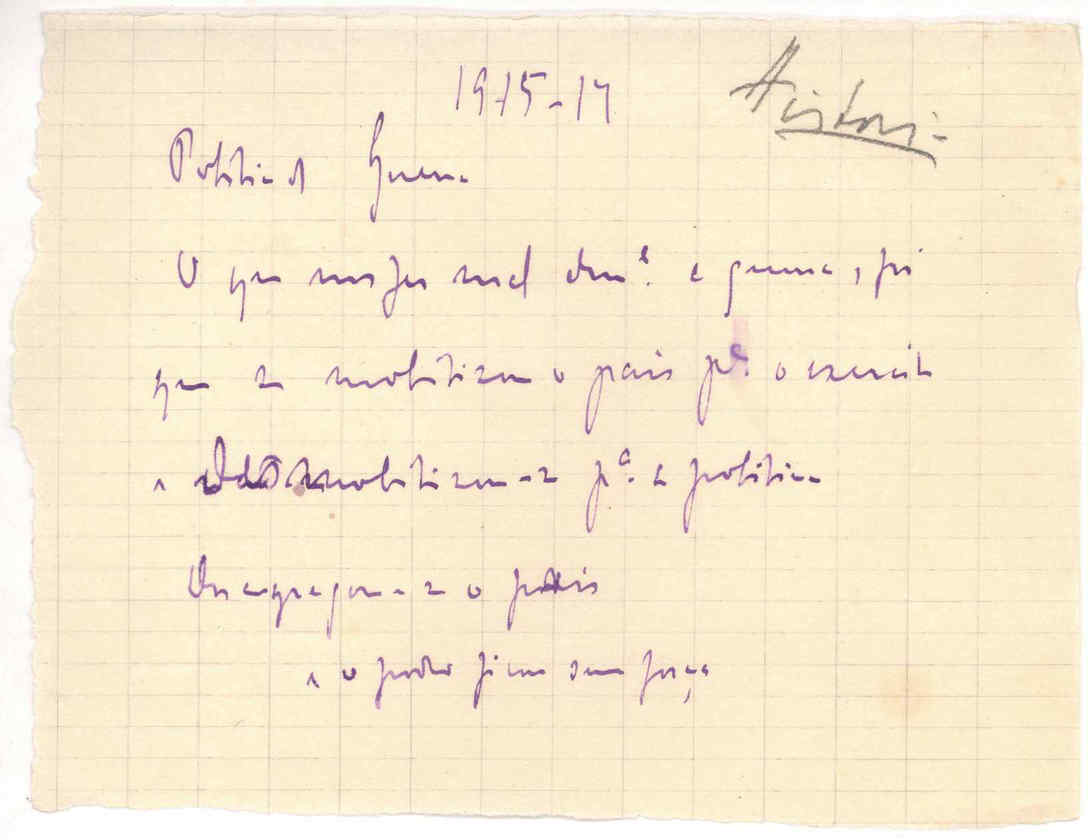 1915-17
Histori-
Politica d Guerra
O que nos fez mal durᵉ. a guerra, foi
que se mobilizou o pais pª. o exercito
e mobilizou-se pª. a politica
Desagregou-se o pais
e o poder ficou sem força